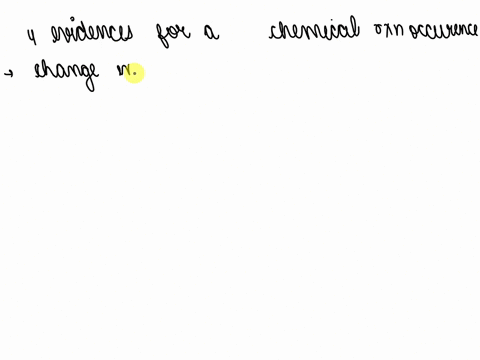 4 evidences for a chemical rxn occurence
→ change in